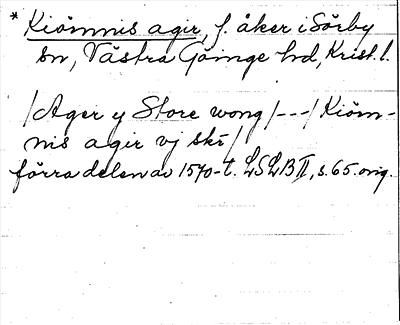 * Kiömnis agir, f. åker i Sörby
sn, Västra Göinge hd, Krist. l.
/Ager y Store wong/---/Kiöm-
nis agir vj skr/
förra delen av 1570-t. LSLB II, s. 65. orig.